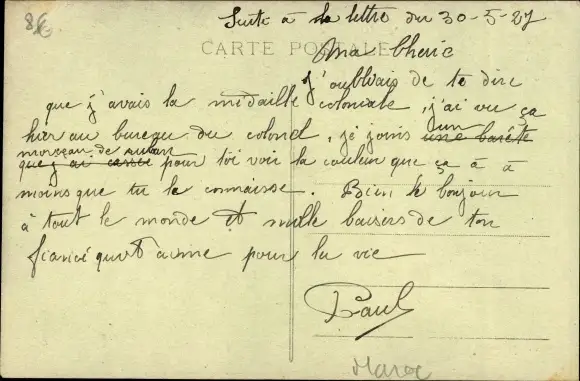 8€
Suite à la lettre du 30-5-27
CARTE POSTALE
Ma Cherie
J'oubliais de te dire
que j'avais la médaille coloniale, j'ai vu ça
hier au bureau du colonel, je joins un une barète
morceau de ruban
que j'ai cassé pour toi voir la couleur que ça à à
moins que tu la connaisse. Bien le bonjour
à tout le monde et mille baisers de ton
fiancé qui t'aime pour la vie
Paul
Maroc